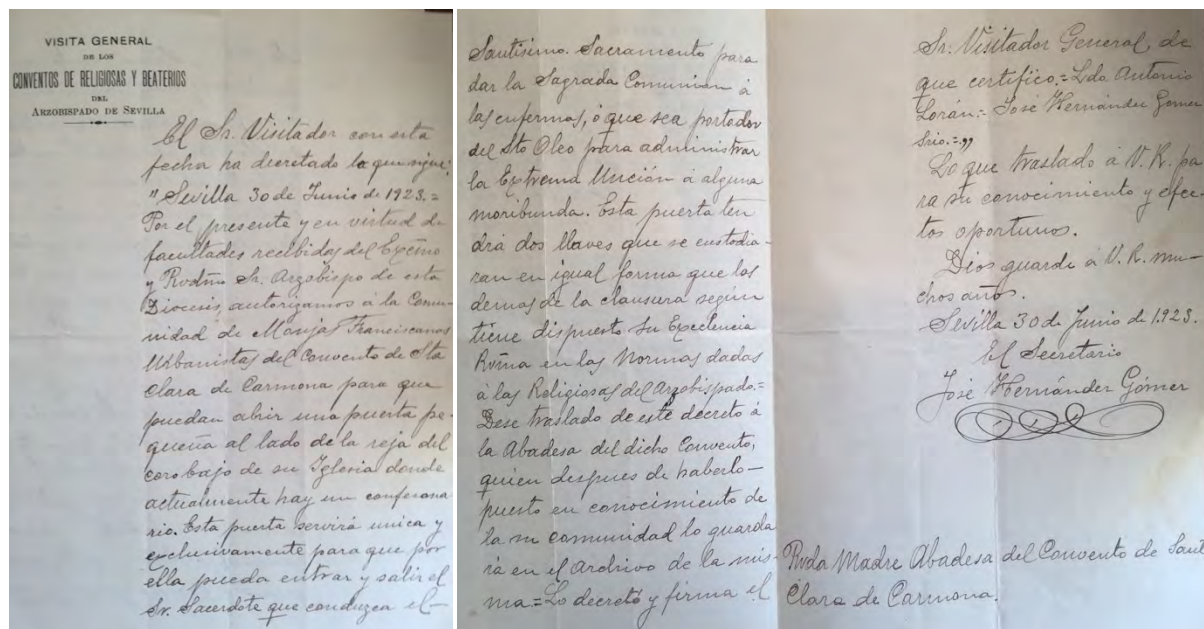 VISITA GENERAL
DE LOS
CONVENTOS DE RELIGIOSAS Y BEATERIOS
DEL
ARZOBISPADO DE SEVILLA
El Sr. Visitador con esta
fecha ha decretado lo que sigue:
"Sevilla 30 de Junio de 1923.=
Por el presente y en virtud de
facultades recibidas del Excmo
y Rvdmo Sr. Arzobispo de esta
Diocesis, autorizamos á la Comu-
nidad de Monjas Franciscanas
Urbanistas del Convento de Sta
Clara de Carmona para que
puedan abrir una puerta pe-
queña al lado de la reja del
coro bajo de su Iglesia donde
actualmente hay un confesona
rio. Esta puerta servirá unica y
exclusivamente para que por
ella pueda entrar y salir el
Sr. Sacerdote que conduzca el-
Santísimo. Sacramento para
dar la Sagrada Comunion á
las enfermas, ó que sea portador
del Sto Oleo para administrar
la Extrema Unción á alguna
moribunda. Esta puerta ten
drá dos llaves que se custodia-
ran en igual forma que las
demas de la clausura según
tiene dispuesto Su Excelencia
Rvma en las Normas dadas
á las Religiosas del Arzobispado.=
Dese traslado de este decreto á
la Abadesa del dicho Convento,
quien despues de haberlo-
puesto en conocimiento de
la su comunidad lo guarda
rá en el archivo de la mis-
ma.=Lo decretó y firma el
Sr. Visitador General, de
que certifico.=Ldo Antonio
Lorán.= José Hernández Gómez
Srio.="
Lo que traslado á V. R. pa-
ra su conocimiento y efec-
tos oportunos.
Dios guarde á V. R. mu-
chos años.
Sevilla 30 de Junio de 1923.
El Secretario
José Hernández Gómez
Rvda Madre Abadesa del Convento de Sant
Clara de Carmona.